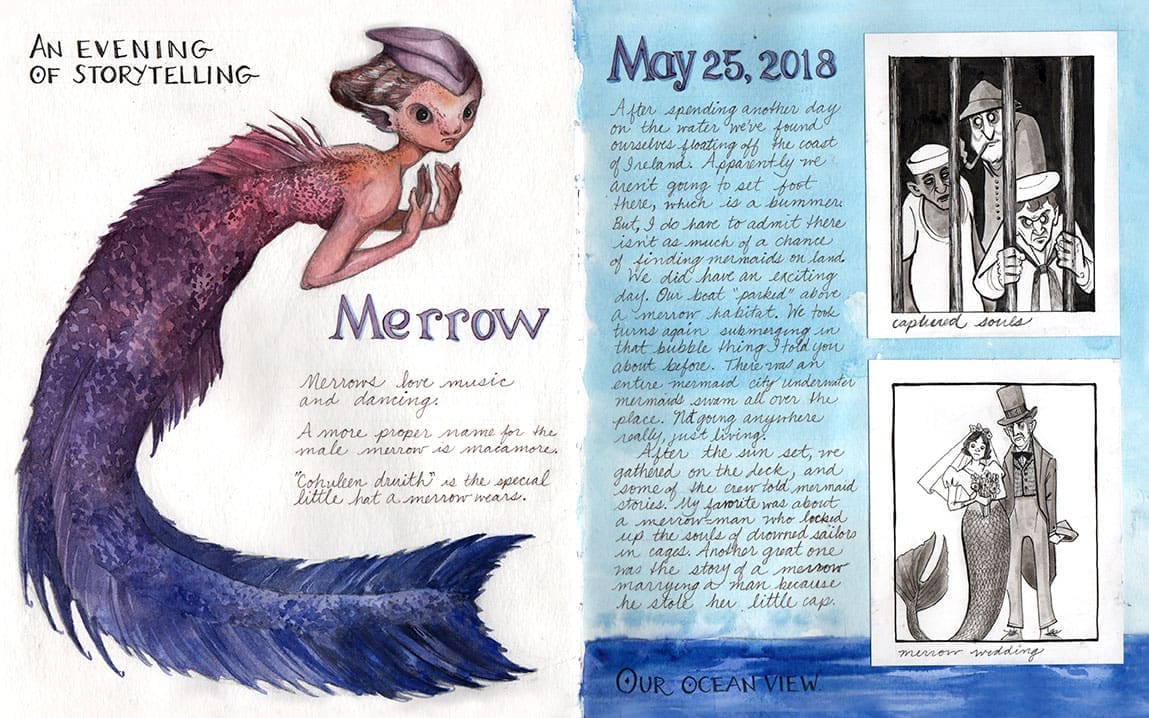 AN EVENING
OF STORYTELLING
Merrow
Merrows love music
and dancing.
A more proper name for the
male merrow is macamore.
"Cohuleen druith" is the special
little hat a merrow wears.
May 25, 2018
After spending another day
on the water we've found
ourselves floating off the coast
of Ireland. Apparently we
aren't going to set foot
there, which is a bummer.
But, I do have to admit there
isn't as much of a chance
of finding mermaids on land.
We did have an exciting
day. Our boat "parked" above
a merrow habitat. We took
turns again submerging in
that bubble thing I told you
about before. There was an
entire mermaid city underwater
mermaids swam all over the
place. Not going anywhere
really, just living.
After the sun set, we
gathered on the deck, and
some of the crew told mermaid
stories. My favorite was about
a merrow-man who locked
up the souls of drowned sailors
in cages. Another great one
was the story of a merrow
marrying a man because
he stole her little cap.
OUR OCEAN VIEW
captured souls
merrow wedding